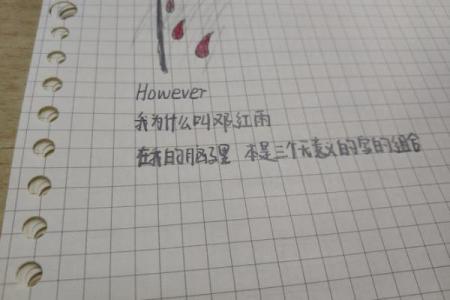 However
我为什么叫邓红雨
在我的脑子里 本是三个无意义的字的组合